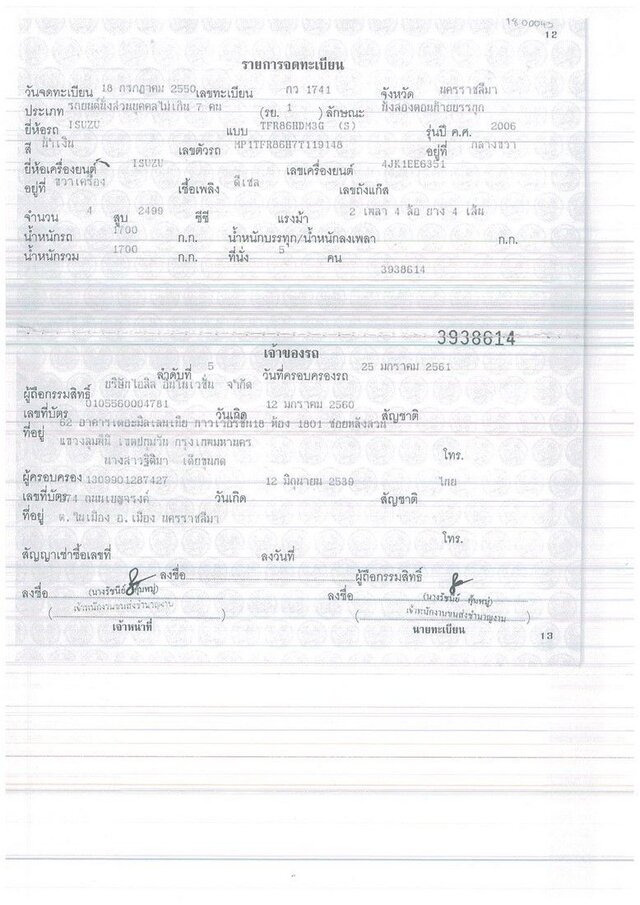 1800045
12
รายการจดทะเบียน
วันจดทะเบียน 18 กรกฎาคม 2550 เลขทะเบียน กว 1741 จังหวัด นครราชสีมา
ประเภท รถยนต์นั่งส่วนบุคคลไม่เกิน 7 คน (รย. 1 ) ลักษณะ นั่งสองตอนท้ายบรรทุก
ยี่ห้อรถ ISUZU แบบ TFR86HDM3G (S) รุ่นปี ค.ศ. 2006
สี น้ำเงิน เลขตัวรถ MP1TFR86H7T119148 อยู่ที่ กลางขวา
ยี่ห้อเครื่องยนต์ ISUZU เลขเครื่องยนต์ 4JK1EE6351
อยู่ที่ ขวาเครื่อง เชื้อเพลิง ดีเซล เลขถังแก๊ส
จำนวน 4 สูบ 2499 ซีซี แรงม้า 2 เพลา 4 ล้อ ยาง 4 เส้น
น้ำหนักรถ 1700 ก.ก. น้ำหนักบรรทุก/น้ำหนักลงเพลา ก.ก.
น้ำหนักรวม 1700 ก.ก. ที่นั่ง 5 คน
3938614
3938614
เจ้าของรถ
ลำดับที่ 5 วันที่ครอบครองรถ 25 มกราคม 2561
ผู้ถือกรรมสิทธิ์ บริษัทไอลิล อินโนเวชั่น จำกัด
เลขที่บัตร 0105560004781 วันเกิด 12 มกราคม 2560 สัญชาติ
ที่อยู่ 62 อาคารเดอะมิลเลนเนีย ทาวเวอร์ชั้น18 ห้อง 1801 ซอยหลังสวน
แขวงลุมพินี เขตปทุมวัน กรุงเทพมหานคร
โทร.
ผู้ครอบครอง นางสาวฐิติมา
เลขที่บัตร 1309901287427 วันเกิด 12 มิถุนายน 2539 สัญชาติ ไทย
ที่อยู่ 74 ถนนเบญจรงค์
ต.ในเมือง อ.เมือง นครราชสีมา
โทร.
สัญญาเช่าซื้อเลขที่ ลงวันที่
ลงชื่อ ผู้ถือกรรมสิทธิ์
ลงชื่อ (นางรัชนีย์ คุ้มหมู่) ลงชื่อ (นางรัชนีย์ คุ้มหมู่)
เจ้าพนักงานขนส่งชำนาญงาน เจ้าพนักงานขนส่งชำนาญงาน
เจ้าหน้าที่ นายทะเบียน
13